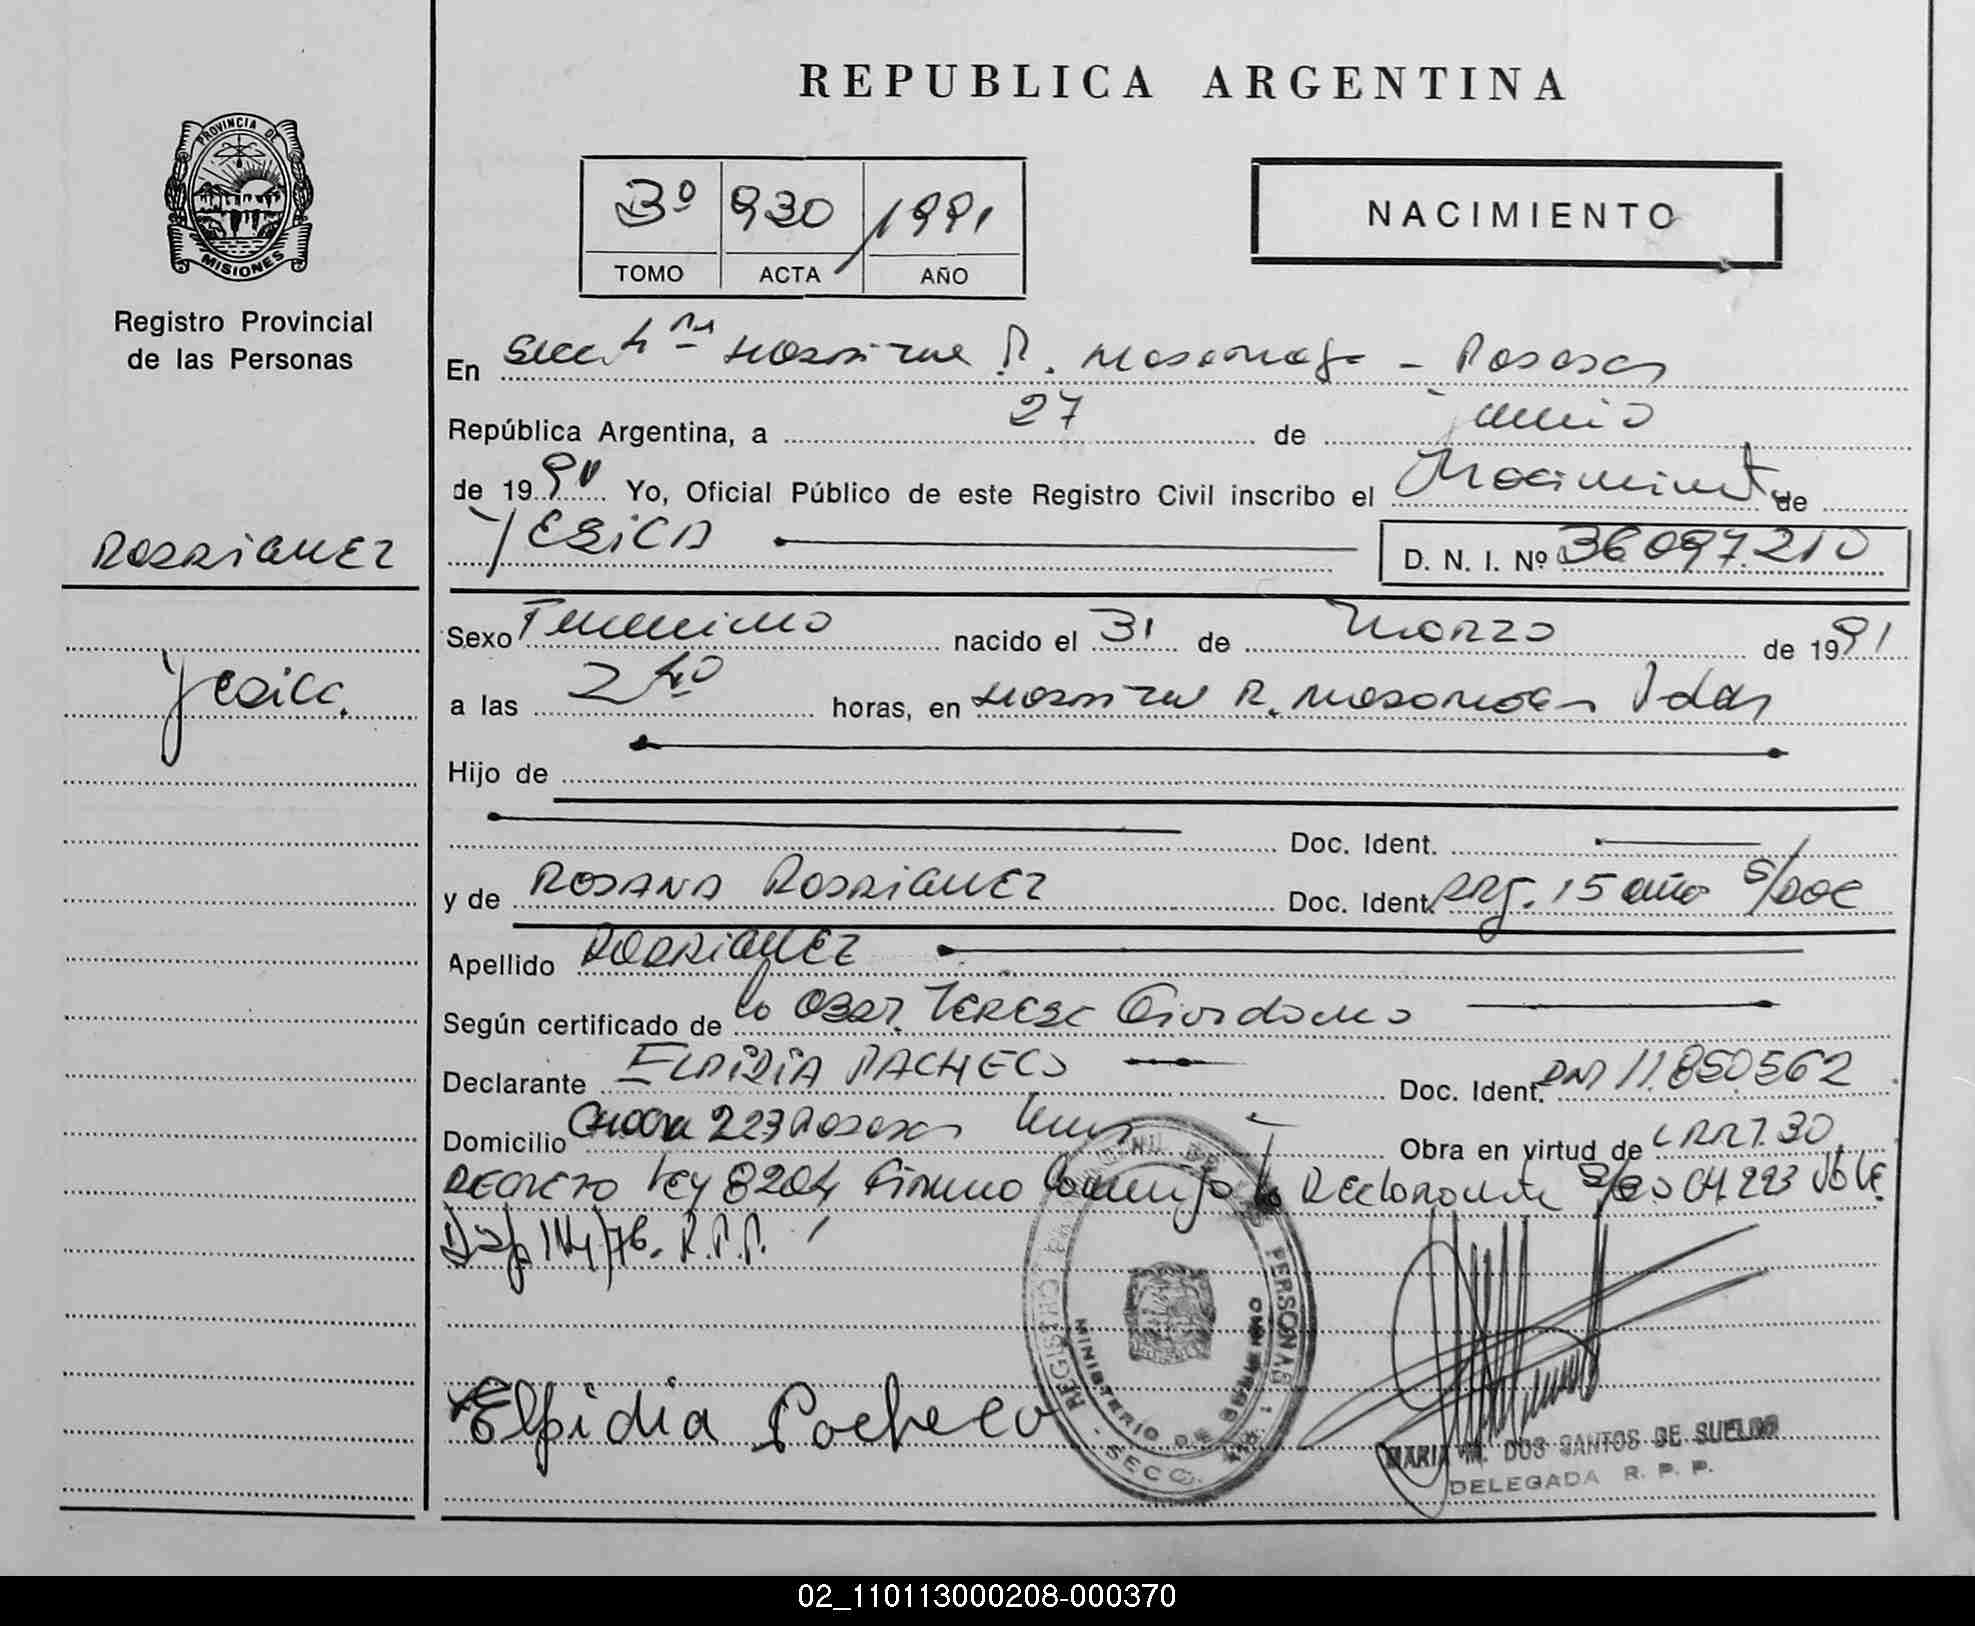 REPUBLICA ARGENTINA
PROVINCIA DE
MISIONES
Registro Provincial
de las Personas
3º 930 1991
TOMO ACTA AÑO
NACIMIENTO
En Secc 1ra Hospital R. Madariaga - Posadas
República Argentina, a 27 de junio
de 1991 Yo, Oficial Público de este Registro Civil inscribo el Nacimiento de
YESICA D. N. I. Nº 36.097.210
RODRIGUEZ
Yesica.
Sexo Femenino nacido el 31 de Marzo de 1991
a las 2 hs horas, en Hospital R. Madariaga Pdas
Hijo de
Doc. Ident.
y de ROSANA RODRIGUEZ Doc. Ident. Arg. 15 años S/DOC
Apellido RODRIGUEZ
Según certificado de la Obst. TERESA Giordano
Declarante ELPIDIA PACHECO Doc. Ident. DNI 11.850.562
Domicilio Chacra 223 Posadas Obra en virtud de ART. 30
DECRETO Ley 8204 Firmando conmigo la Declarante S/R CH 223 VALE.
Disp 114/76. R.P.P.
Elpidia Pacheco
REGISTRO PROVINCIAL DE LAS PERSONAS
MINISTERIO DE GOBIERNO
SECC
MARIA M. DOS SANTOS DE SUELDO
DELEGADA R. P. P.
02_110113000208-000370